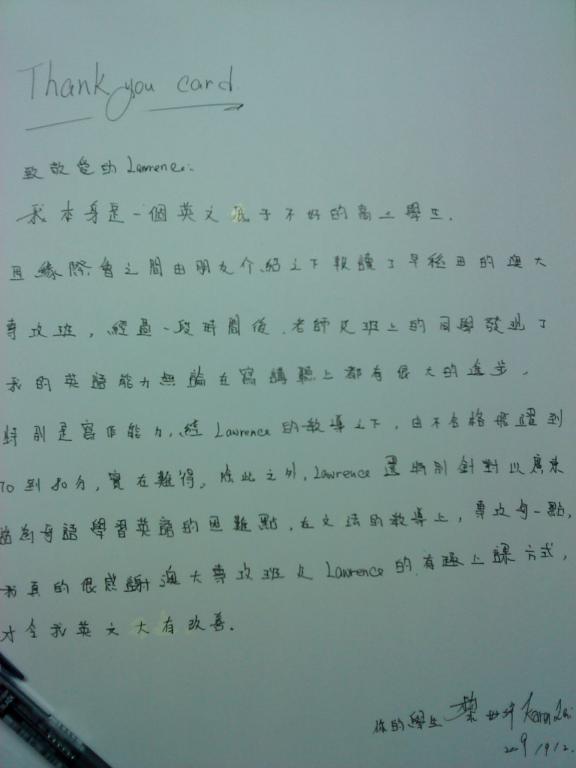 Thank you card
致敬愛的Lawrence:
我本身是一個英文底子不好的高三學生.
因緣際會之間由朋友介紹之下報讀了早稻田的澳大
專攻班,經過一段時間後,老師及班上的同學發現了
我的英語能力無論在寫講聽上都有很大的進步,
特別是寫作能力,經Lawrence的教導之下,由不合格飛躍到
70到80分,實在難得。除此之外,Lawrence還特別針對以廣東
話為母語學習英語的困難點,在文法的教導上,專攻每一點,
我真的很感謝澳大專攻班及Lawrence的有趣上課方式,
才令我英文大有改善.
你的學生